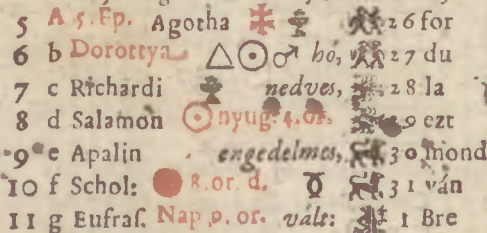 5 A 5. Ep. Agotha 26 for
6 b Dorottya △☉♂ ho, 27 du
7 c Richardi nedves, 28 la
8 d Salamon ☉ nyug. 4. or. 29 ezt
9 e Apalin engedelmes, 30 mond
10 f Schol: 8. or. d. ♉ 31 ván
11 g Eufraſ. Nap 9. or. vált: 1 Bre